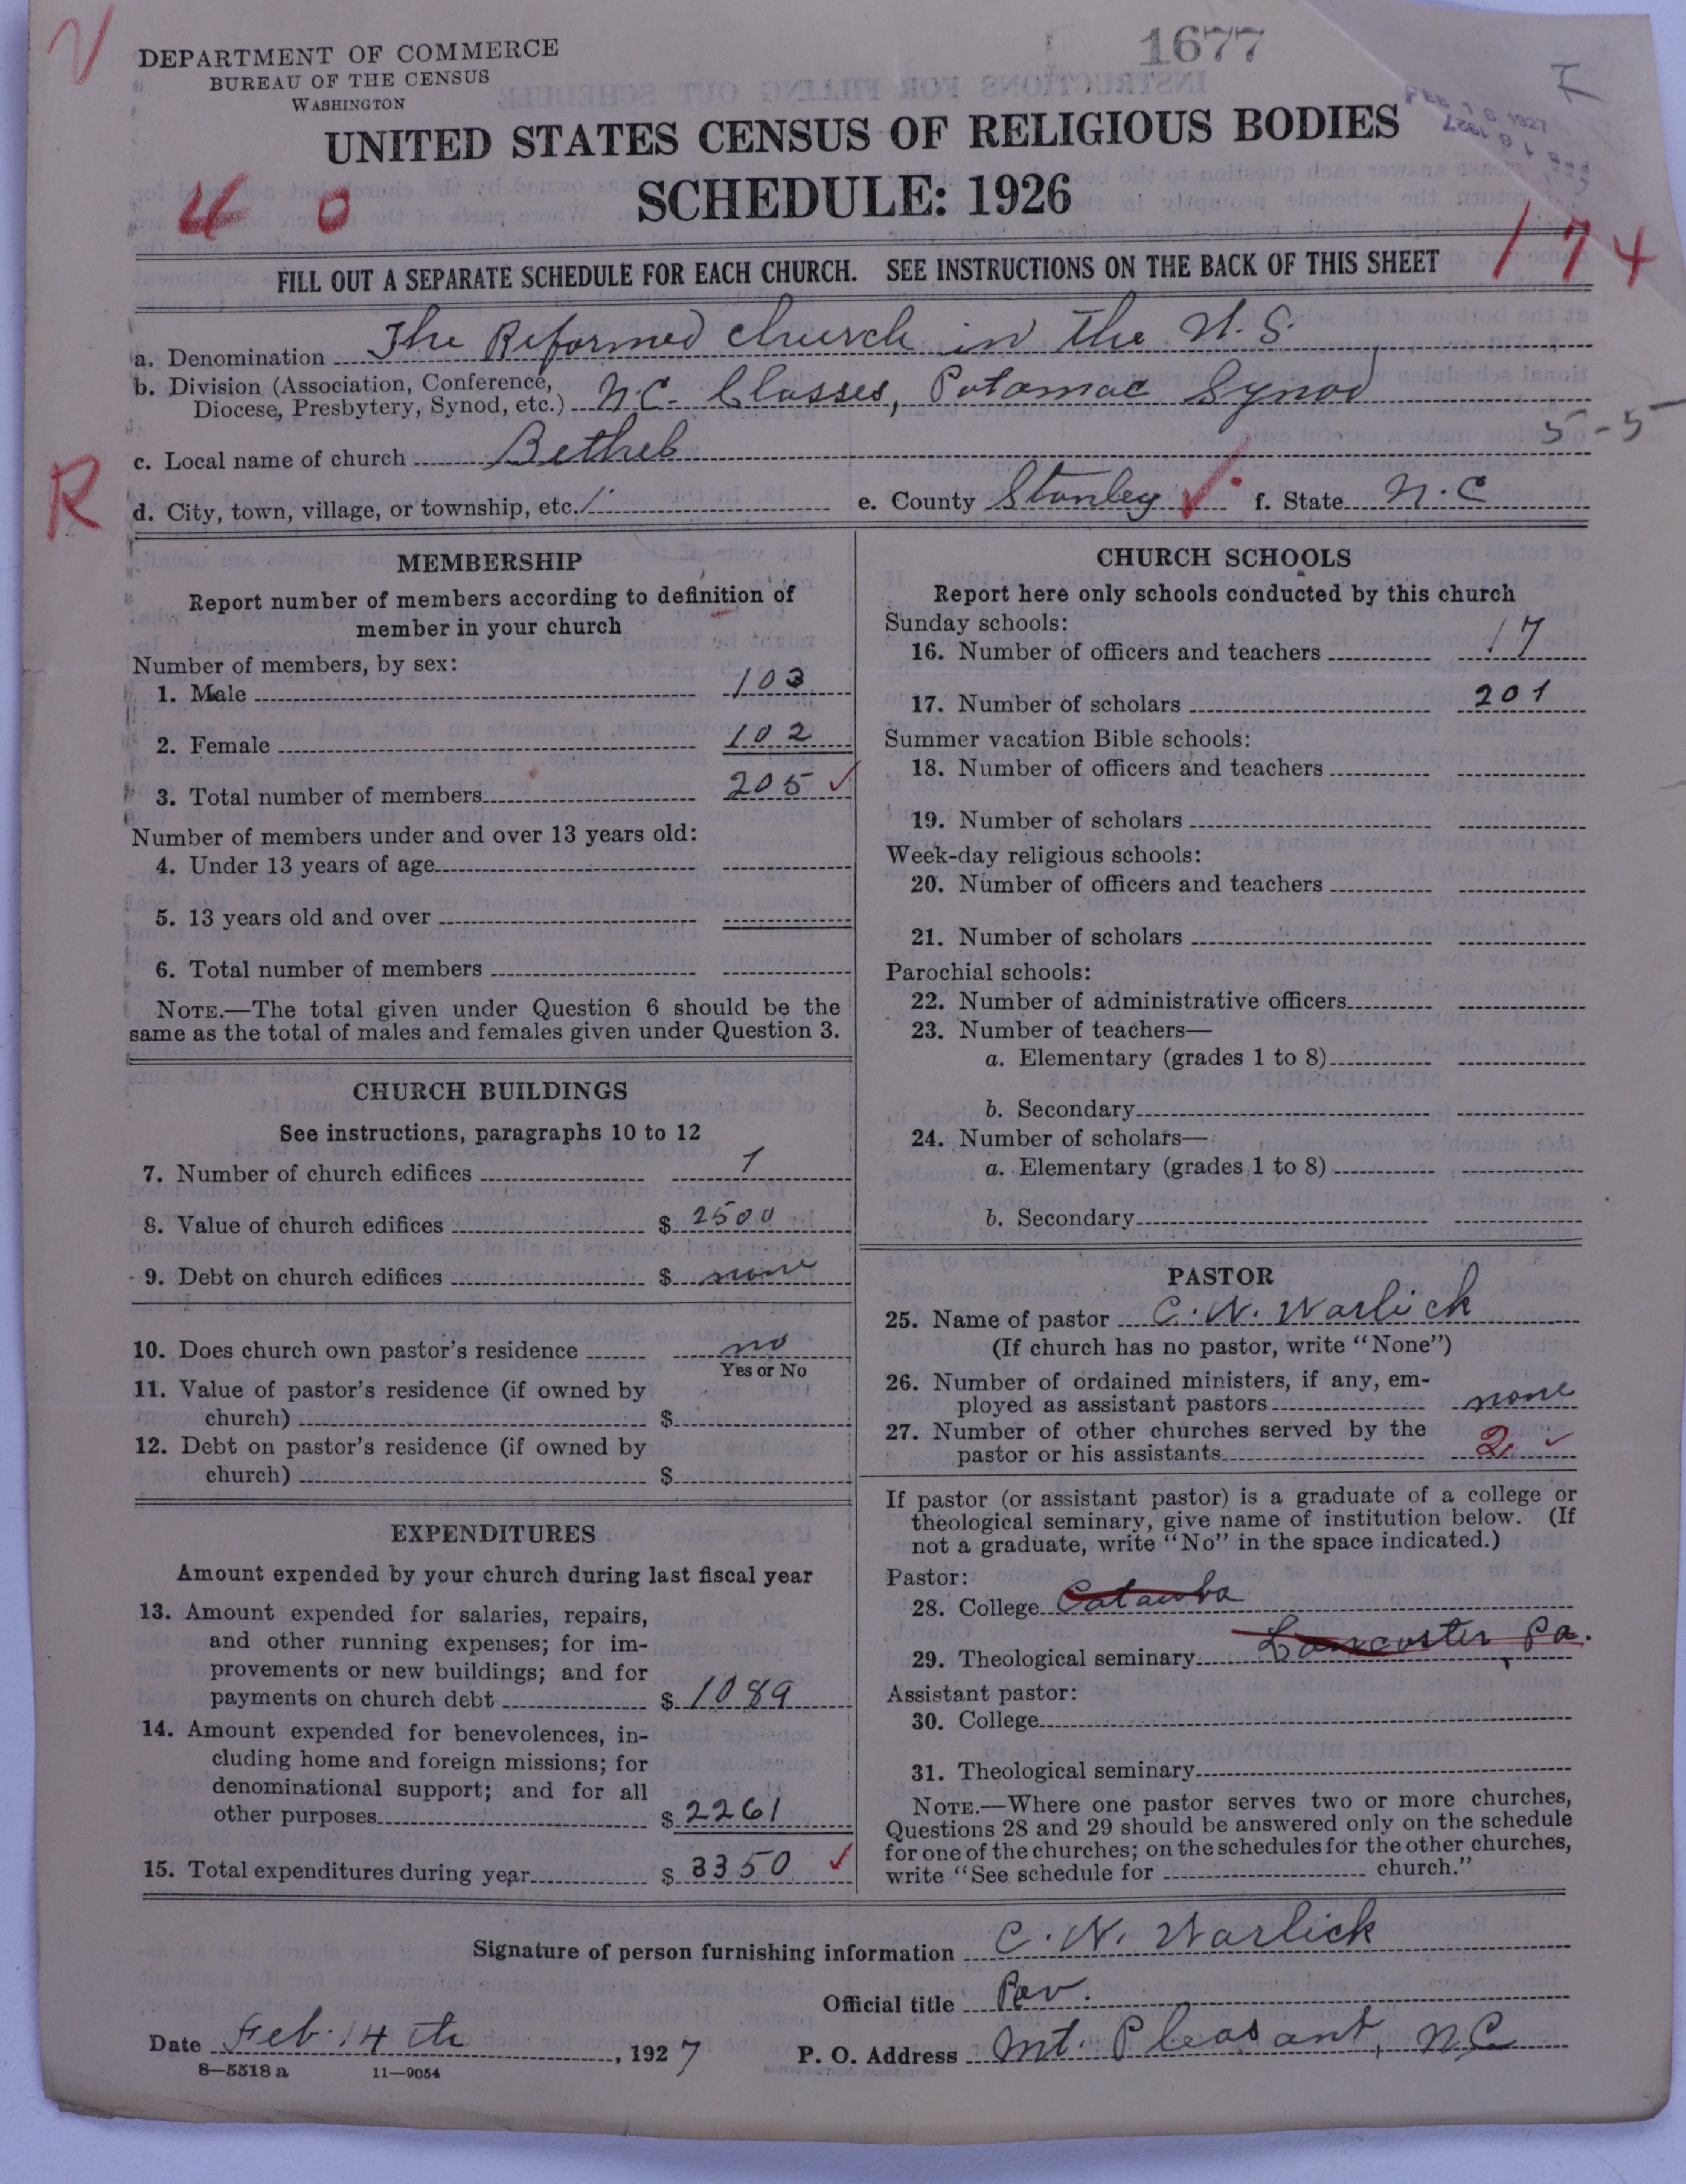 1677
DEPARTMENT OF COMMERCE
BUREAU OF THE CENSUS
WASHINGTON
FEB 16 1927
UNITED STATES CENSUS OF RELIGIOUS BODIES
SCHEDULE: 1926
4 0
174
FILL OUT A SEPARATE SCHEDULE FOR EACH CHURCH. SEE INSTRUCTIONS ON THE BACK OF THIS SHEET
a. Denomination The Reformed church in the U.S.
b. Division (Association, Conference,
Diocese, Presbytery, Synod, etc.) N.C. Classes, Potomac Synod
5-5
c. Local name of church
R
d. City, town, village, or township, etc. e. County Stanley f. State N.C
MEMBERSHIP
Report number of members according to definition of
member in your church
Number of members, by sex:
1. Male 103
2. Female 102
3. Total number of members 205
Number of members under and over 13 years old:
4. Under 13 years of age
5. 13 years old and over
6. Total number of members
NOTE.—The total given under Question 6 should be the
same as the total of males and females given under Question 3.
CHURCH BUILDINGS
See instructions, paragraphs 10 to 12
7. Number of church edifices 1
8. Value of church edifices $ 2500
9. Debt on church edifices $ none
10. Does church own pastor's residence no
Yes or No
11. Value of pastor's residence (if owned by
church) $
12. Debt on pastor's residence (if owned by
church) $
EXPENDITURES
Amount expended by your church during last fiscal year
13. Amount expended for salaries, repairs,
and other running expenses; for im-
provements or new buildings; and for
payments on church debt $ 1089
14. Amount expended for benevolences, in-
cluding home and foreign missions; for
denominational support; and for all
other purposes $ 2261
15. Total expenditures during year $ 3350
CHURCH SCHOOLS
Report here only schools conducted by this church
Sunday schools:
16. Number of officers and teachers 17
17. Number of scholars 201
Summer vacation Bible schools:
18. Number of officers and teachers
19. Number of scholars
Week-day religious schools:
20. Number of officers and teachers
21. Number of scholars
Parochial schools:
22. Number of administrative officers
23. Number of teachers—
a. Elementary (grades 1 to 8)
b. Secondary
24. Number of scholars—
a. Elementary (grades 1 to 8)
b. Secondary
PASTOR
25. Name of pastor C. W. Warlick
(If church has no pastor, write "None")
26. Number of ordained ministers, if any, em-
ployed as assistant pastors none
27. Number of other churches served by the
pastor or his assistants 2
If pastor (or assistant pastor) is a graduate of a college or
theological seminary, give name of institution below. (If
not a graduate, write "No" in the space indicated.)
Pastor:
28. College Catawba
29. Theological seminary Lancaster, Pa.
Assistant pastor:
30. College
31. Theological seminary
NOTE.—Where one pastor serves two or more churches,
Questions 28 and 29 should be answered only on the schedule
for one of the churches; on the schedules for the other churches,
write "See schedule for church."
Signature of person furnishing information C. W. Warlick
Official title Rev.
Date Feb. 14 th, 1927 P. O. Address Mt. Pleasant, N.C
8—5518 a 11—9054